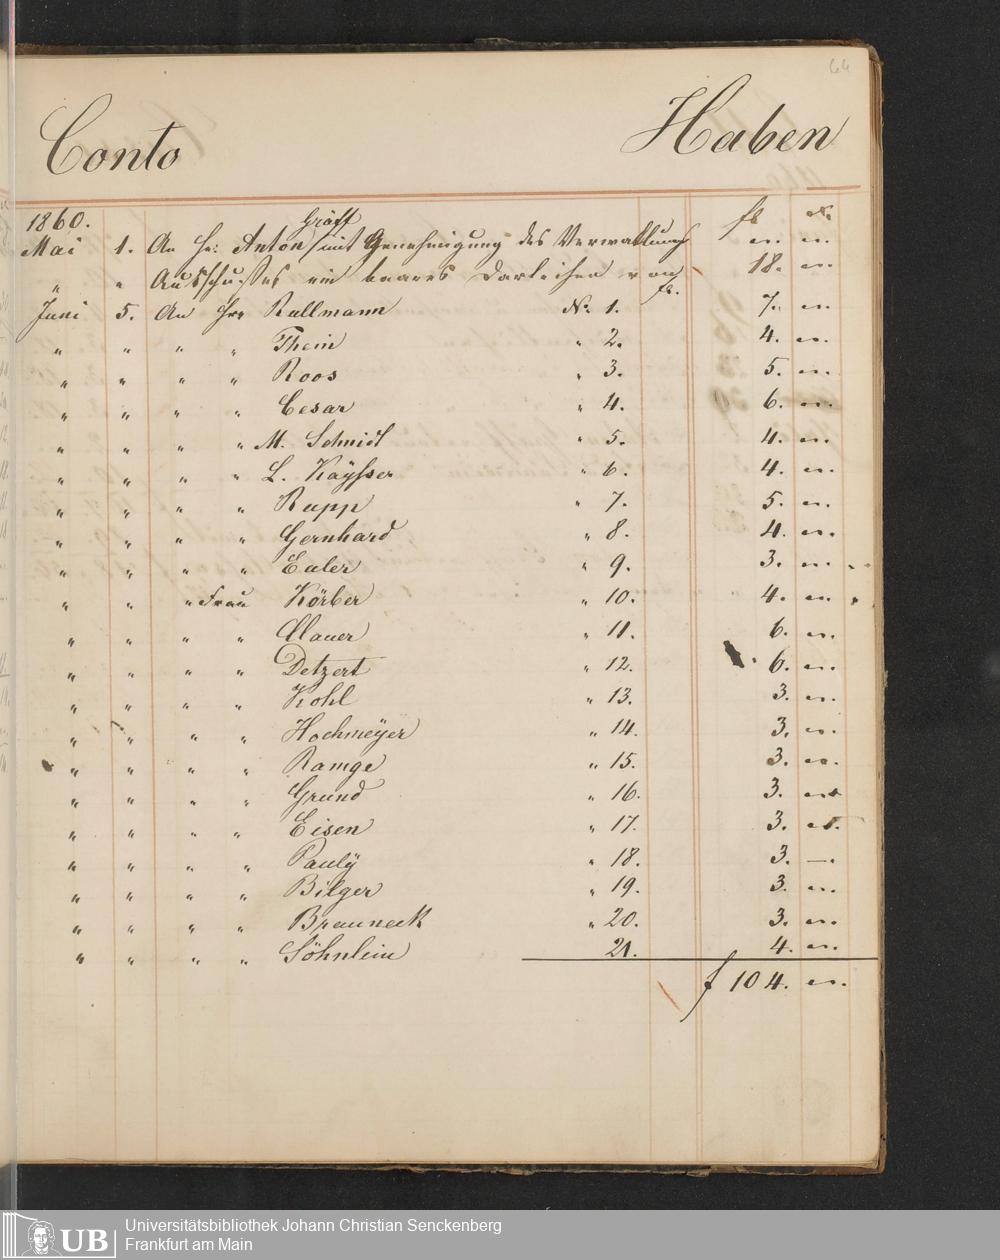 64
Conto Haben
1860. Gräff fl xr.
Mai 1. An Hr: Anton mit Genehmigung des Verwaltungs " "
" " Ausschußes ein baares Darleihen von fl. 18. "
Juni 5. An Hrn Rullmann No. 1. 7. "
" " " " Thein " 2. 4. "
" " " " Roos " 3. 5. "
" " " " Cesar " 4. 6. "
" " " " M. Schmidt " 5. 4. "
" " " " L. Kaÿsser " 6. 4. "
" " " " Rupp " 7. 5. "
" " " " Gernhard " 8. 4. "
" " " " Euler " 9. 3. "
" " " Frau Körber " 10. 4. "
" " " " Clauer " 11. 6. "
" " " " Detzert " 12. 6. "
" " " " Kohl " 13. 3. "
" " " " Hochmeÿer " 14. 3. "
" " " " Ramge " 15. 3. "
" " " " Grund " 16. 3. "
" " " " Eisen " 17. 3. "
" " " " Paulÿ " 18. 3. —
" " " " Bilger " 19. 3. "
" " " " Brauneck " 20. 3. "
" " " " Söhnlein 21. 4. "
f 104. "
UB Universitätsbibliothek Johann Christian Senckenberg
Frankfurt am Main